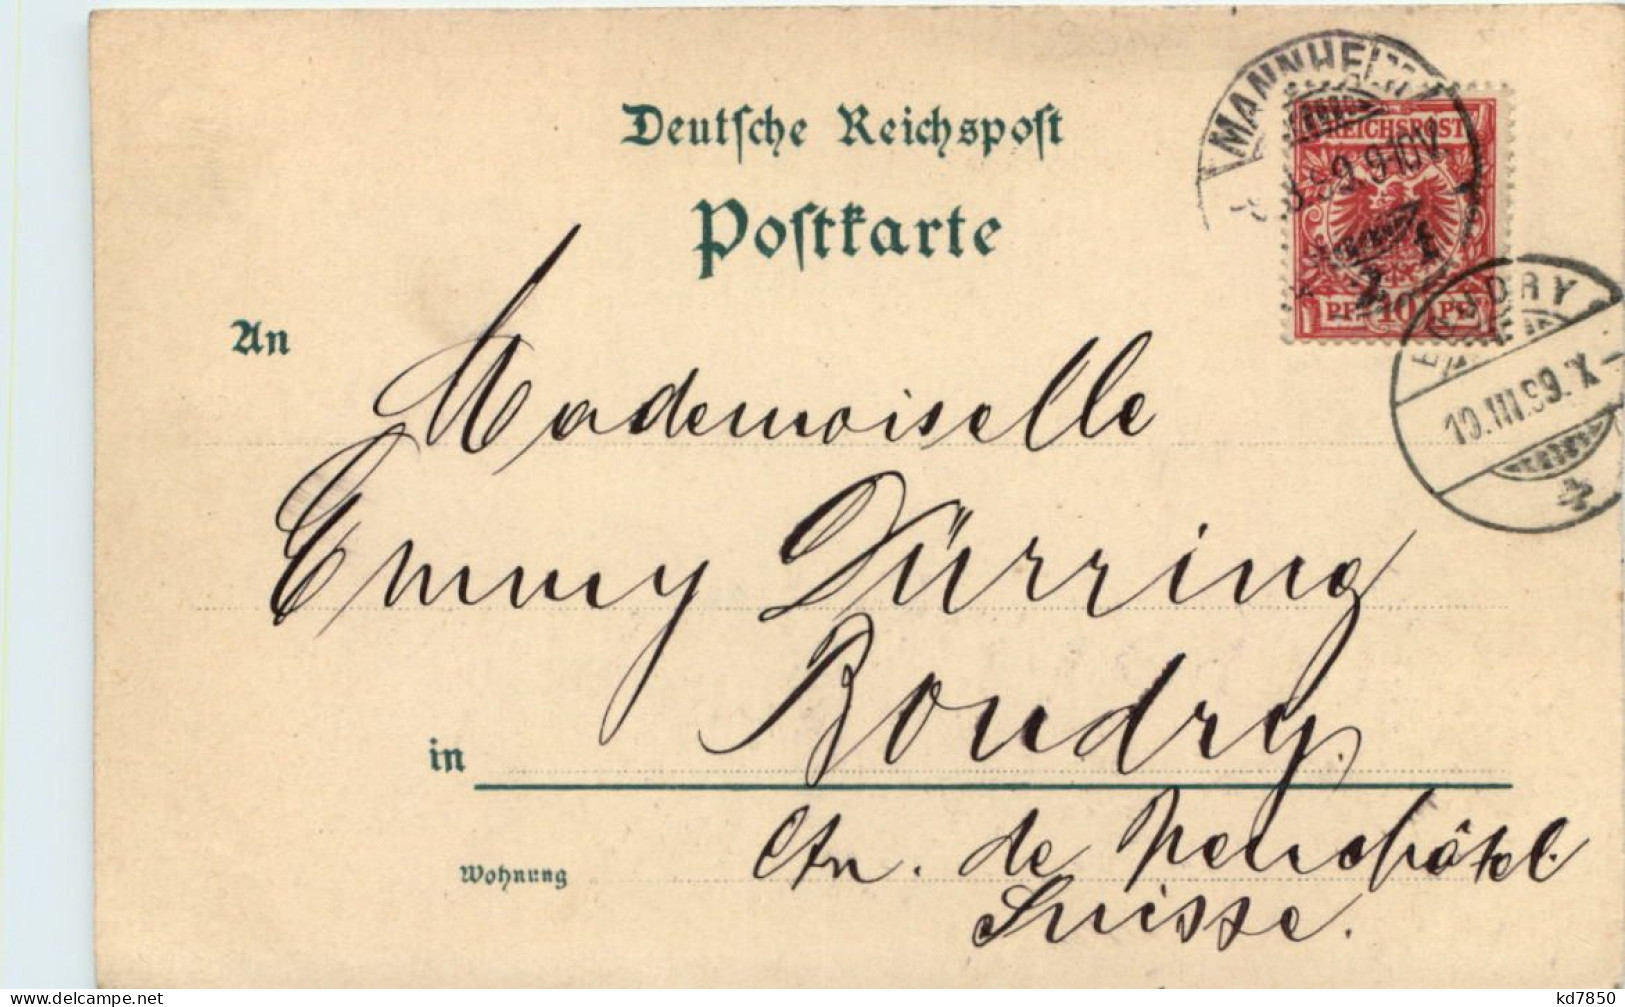 Deutsche Reichspost
Postkarte
MANNHEIM
9-10V.
REICHSPOST
PF 10 PF
BOUDRY
10.III.99.X-
An
Mademoiselle
Emmy Dürring
in Boudry.
Wohnung
Ctn. de Neuchâtel.
Suisse.
kd7850